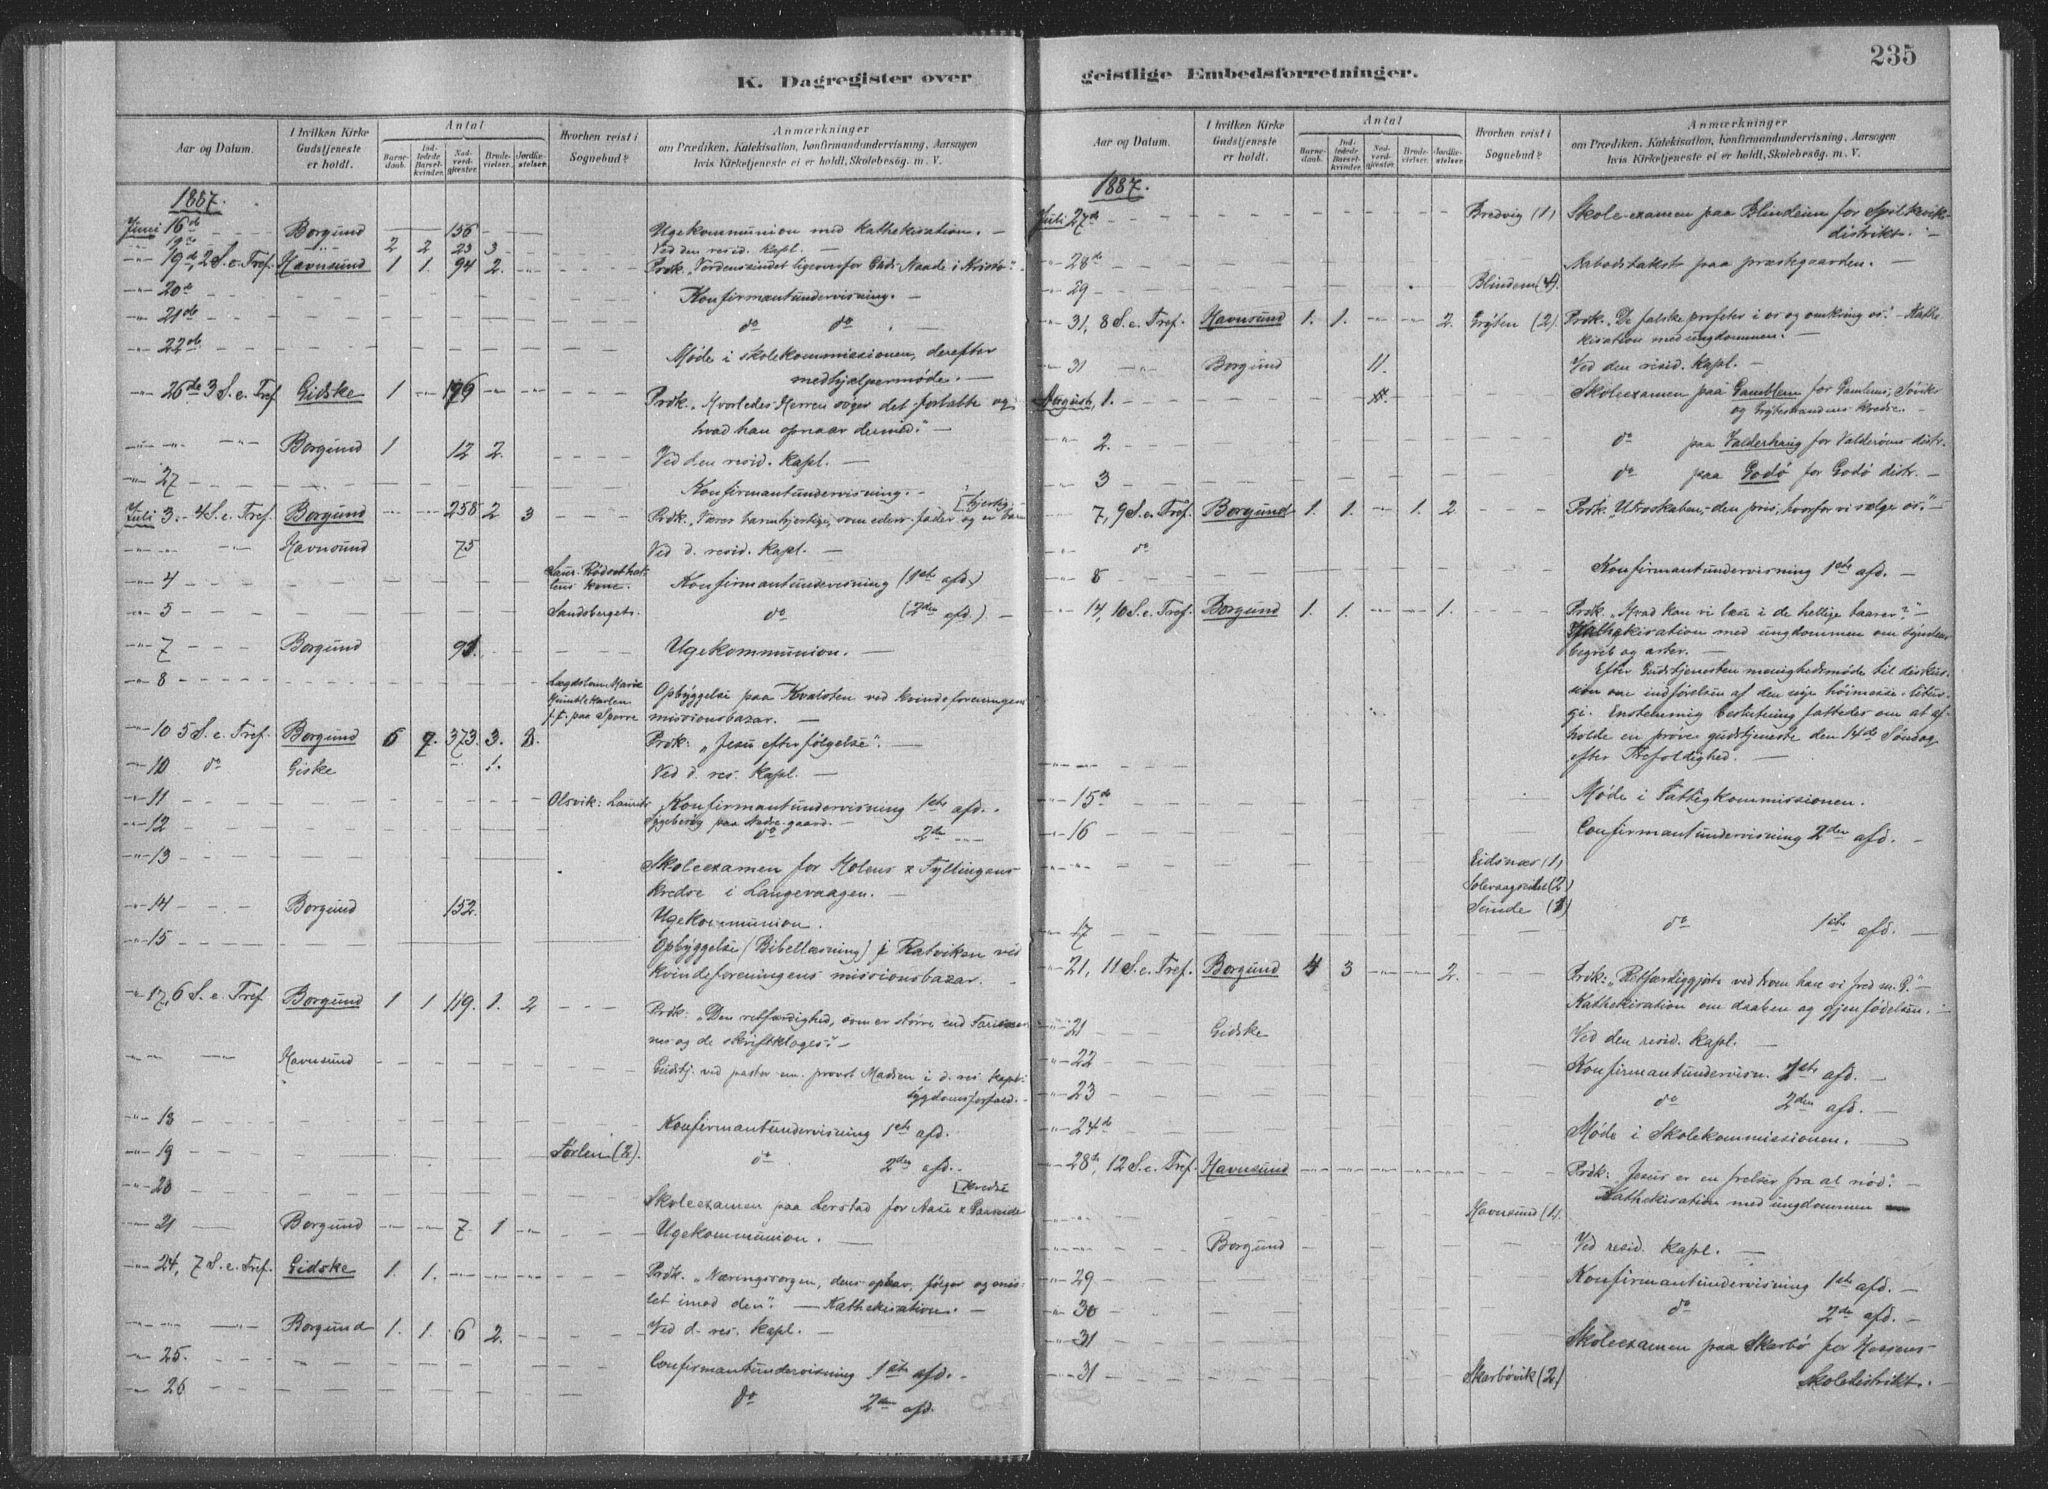 235
K. Dagregister over
geistlige Embedsforretninger.
Aar og Datum.
I hvilken Kirke Gudstjeneste er holdt.
Antal
Barnedaab. Indledede Barselkvinder. Nadverdgjester. Brudevielser. Jordfæstelser.
Hvorhen reist i Sognebud?
Anmærkninger
om Prædiken, Katekisation, Konfirmandundervisning, Aarsagen
hvis Kirketjeneste ei er holdt, Skolebesøg. m. V.
1887.
Juni 16de Borgund 156 Ugekommunion med Kathekisation. —
19de 2 2 23 3 Ved den resid. Kapl. —
19de, 2 S. e. Tref. Havnsund 1 1. 94 2. Prdk. „Verdenssindet ligeoverfor Guds Naade i Kristo".
20de Konfirmantundervisning. —
21de do do
22de Møde i skolekommissionen, derefter
medhjælpermøde. —
26de 3 S. e. Tref. Gidske 1 196 Prdk. „Hvorledes Herren søger det fortabte og
hvad han opnaar dermed." —
Borgund 1 12 2. Ved den resid. Kapl. —
27 Konfirmantundervisning. —
Juli 3. 4 S. e. Tref. Borgund 258 2 3 Prdk. „Værer barmhjertige, som eders fader og er barm
[hjertig
Havnsund 75 Ved d. resid. Kapl. —
4 Konfirmantundervisning (1ste afd.)
5 Sandsberget do (2den afd.) —
7 Borgund 91. Ugekommunion. —
8 Opbyggelse paa Kvalsten ved kvindeforeningens
p.t. paa Sperre missionsbazar. —
10 5 S. e. Tref. Borgund 6 7. 373. 3. 8. Prdk: „Jesu efterfølgelse". —
10 do Giske 1. Ved d. res. Kapl. —
11 Olsvik: Laurits Konfirmantundervisning 1ste afd.
12 Sygebesøg paa gaard. — do 2den
13 Skoleexamen for Holens & Fyllingens
kredse i Langevaagen. —
14 Borgund 152. Ugekommunion.
15 Opbyggelse (Bibellæsning) i Ratviken ved
kvindeforeningens missionsbazar. —
17, 6 S. e. Tref. Borgund 1 1 119. 1. 2 Prdk: „Den retfærdighed, som er større end Farisæer
nes og de skriftkloges". —
Havnsund Gudstj. ved pastor em. provst Madsen i d. res. kapl.
sygdomsforfald. —
18 Konfirmantundervisning 1ste afd.
19 Sørlei (2). do 2den afd. —
[kredse
20 Skoleexamen paa Lerstad for Aase & Gaaseide
21 Borgund 7 1 Ugekommunion. —
24, 7 S. e. Tref. Gidske 1. 1. Prdk. „Næringssorgen, dens ophav, følger og mid-
let imod den". — Kathekisation. —
Borgund 1. 1. 6 2. Ved d. res. Kapl. —
25. Confirmantundervisning 1ste afd. —
26 do 2den afd.
Aar og Datum.
I hvilken Kirke Gudstjeneste er holdt.
Antal
Barnedaab. Indledede Barselkvinder. Nadverdgjester. Brudevielser. Jordfæstelser.
Hvorhen reist i Sognebud?
Anmærkninger
om Prædiken, Katekisation, Konfirmandundervisning, Aarsagen
hvis Kirketjeneste ei er holdt, Skolebesøg. m. V.
1887.
Juli 27de Bredvig (1) Skole-examen paa Blindeim for Spilkevik-
distrikt. —
28de Nabodstakst paa præstegaarden. —
29 Blindem (4).
31, 8 S. e. Tref. Havnsund 1. 1. 2. Gryten (2) Prdk. „De falske profeter i os og omkring os". Kathe-
kisation med ungdommen. —
31 Borgund 11. Ved den resid. Kapl. —
August 1. Skoleexamen paa Gamblem for Gamlems, Søviks
og Grytestrandens kredse. —
2. do paa Valderhaug for Valderøens distr.
3 do paa Godø for Godø distr. —
7, 9 S. e. Tref. Borgund 1. 1. 1. 2 Prdk „Utroskaben, den pris, hvorfor vi sælge os". —
do
8 Konfirmantundervisning 1ste afd. —
14, 10 S. e. Tref. Borgund 1. 1. 1. Prdk. „Hvad kan vi læse i de hellige taarer?" —
Kathekisation med ungdommen om syndens
begreb og arter. —
Efter Gudstjenesten menighedsmøde til diskus-
sion om indførelsen af den nye høimesse-litur-
gi. Enstemmig beslutning fattedes om at af-
holde en prøve gudstjeneste den 14de Søndag
efter Trefoldighed. —
15de Møde i Fattigkommissionen.
16 Confirmantundervisning 2den afd. —
Eidsnæs (1)
Solevaagseidet (2)
Sunde (1)
17 do 1ste afd. —
21, 11 S. e. Tref. Borgund 4 3 2. Prdk: „Retfærdiggjorte ved troen have vi fred m. G." —
Kathekisation om daaben og gjenfødelsen. —
21 Gidske Ved den resid. Kapl. —
22 Konfirmantundervisn. 1ste afd. —
23 do 2den afd. —
24de Møde i Skolekommissionen. —
28de, 12 S. e. Tref. Havnsund Prdk: Jesus er en frelser fra al nød". —
Kathekisation med ungdommen —
Havnsund (1).
Borgund Ved resid. Kapl. —
29 Konfirmantundervisning 1ste afd. —
30 do 2den afd. —
31 Skoleexamen paa Skarbø for Hessens
31 Skarbøvik (2) Skoledistrikt. —